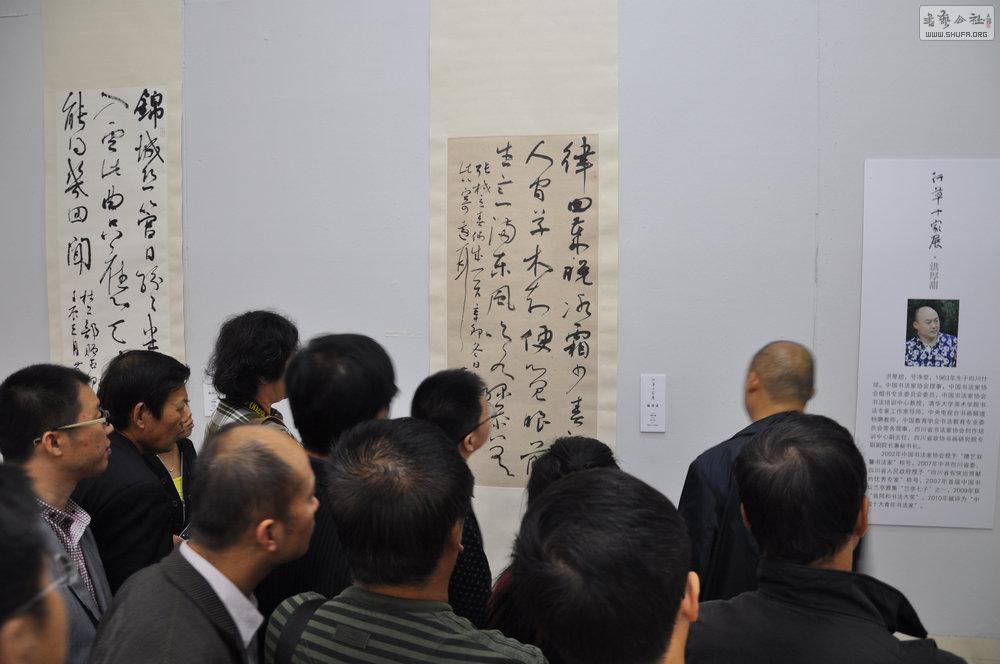 書藝公社
WWW.SHUFA.ORG
錦城丝管日纷〻半
入雲此曲只應天
能得幾回聞
杜工部贈
律回岁晚冰霜少春
人间草木知便觉眼前
生意满东风吹水绿参差
张栻立春偶成一首辛卯冬日
行草十家展·洪厚甜
洪厚甜，号净堂，1963年生于四川什
邡。中国书法家协会理事，中国书法家协
会楷书专业委员会委员，中国书法家协会
书法培训中心教授，清华大学美术学院书
法专家工作室导师，中央电视台书画频道
特聘教师，中国教育学会书法教育专业委
员会常务理事，四川省书法家协会创作培
训中心副主任，四川省政协书画研究院专
职副院长兼秘书长。
2002年中国书法家协会授予“德艺双
馨书法家”称号，2007年中共四川省委、
四川省人民政府授予“四川省有突出贡献
的优秀专家”称号，2007年首届中国
兰亭雅集“兰亭七子”之一，2009年获
“翁同和书法大奖”，2010年被评为“中
国十大青年书法家”。